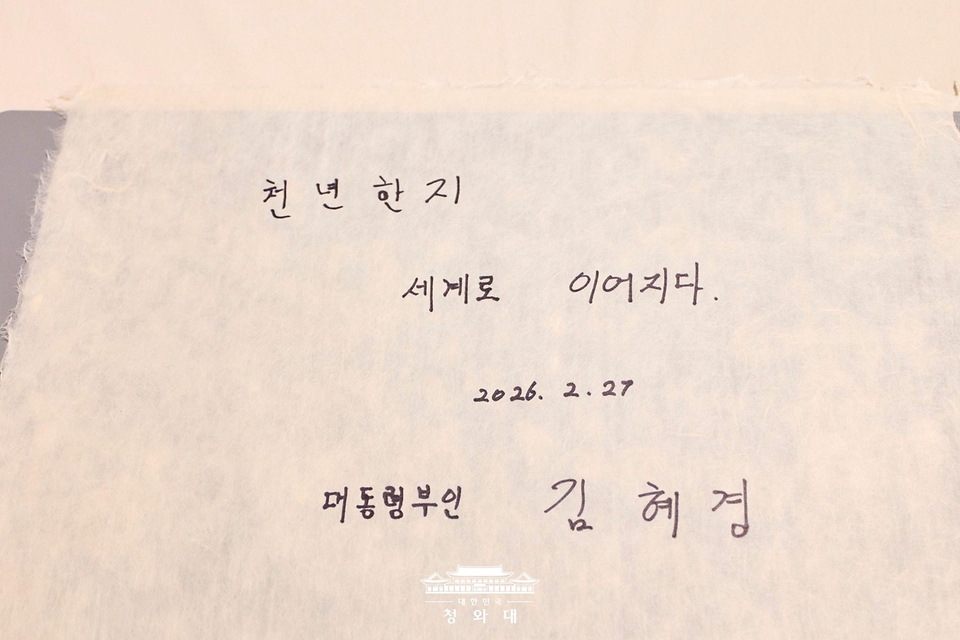 천년한지
세계로 이어지다.
2026. 2. 27
대통령부인 김혜경
대한민국
청와대